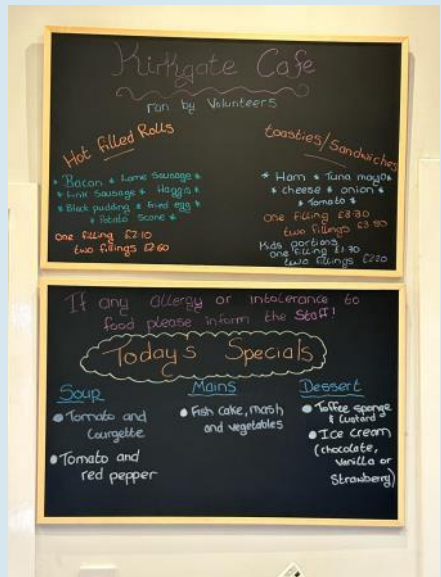 Kirkgate Cafe
ran by Volunteers
Hot Filled Rolls
* Bacon * Lorne Sausage *
* Link Sausage * Haggis *
* Black pudding * Fried egg *
* Potato Scone *
one filling £2.10
two fillings £2.60
toasties/Sandwiches
* Ham * Tuna mayo *
* cheese * onion *
* Tomato *
one filling £3.30
two fillings £3.80
Kids portions
one filling £1.30
two fillings £2.20
If any allergy or intolerance to
food please inform the Staff!
Todays Specials
Soup
Tomato and
Courgette
Tomato and
red pepper
Mains
Fish cake, mash
and vegetables
Dessert
Toffee sponge
& Custard
Ice cream
(chocolate,
Vanilla or
Strawberry)